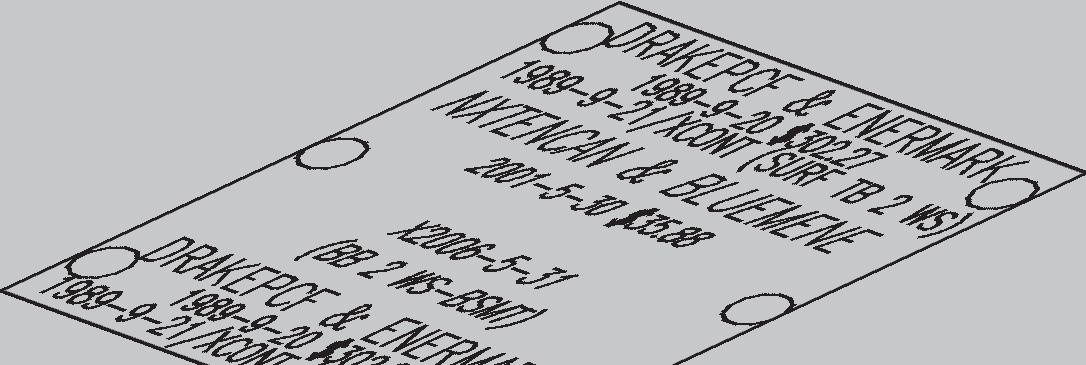 DRAKEPCF & ENERMARK
1989-9-20 $302.27
1989-9-21/XCONT (SURF TB 2 WS)
NXTENCAN & BLUEMENE
2001-5-30 $35.88
X2006-5-31
(BB 2 WS-BSMT)
DRAKEPCF & ENERMA
1989-9-20 $302.
1989-9-21/XCONT